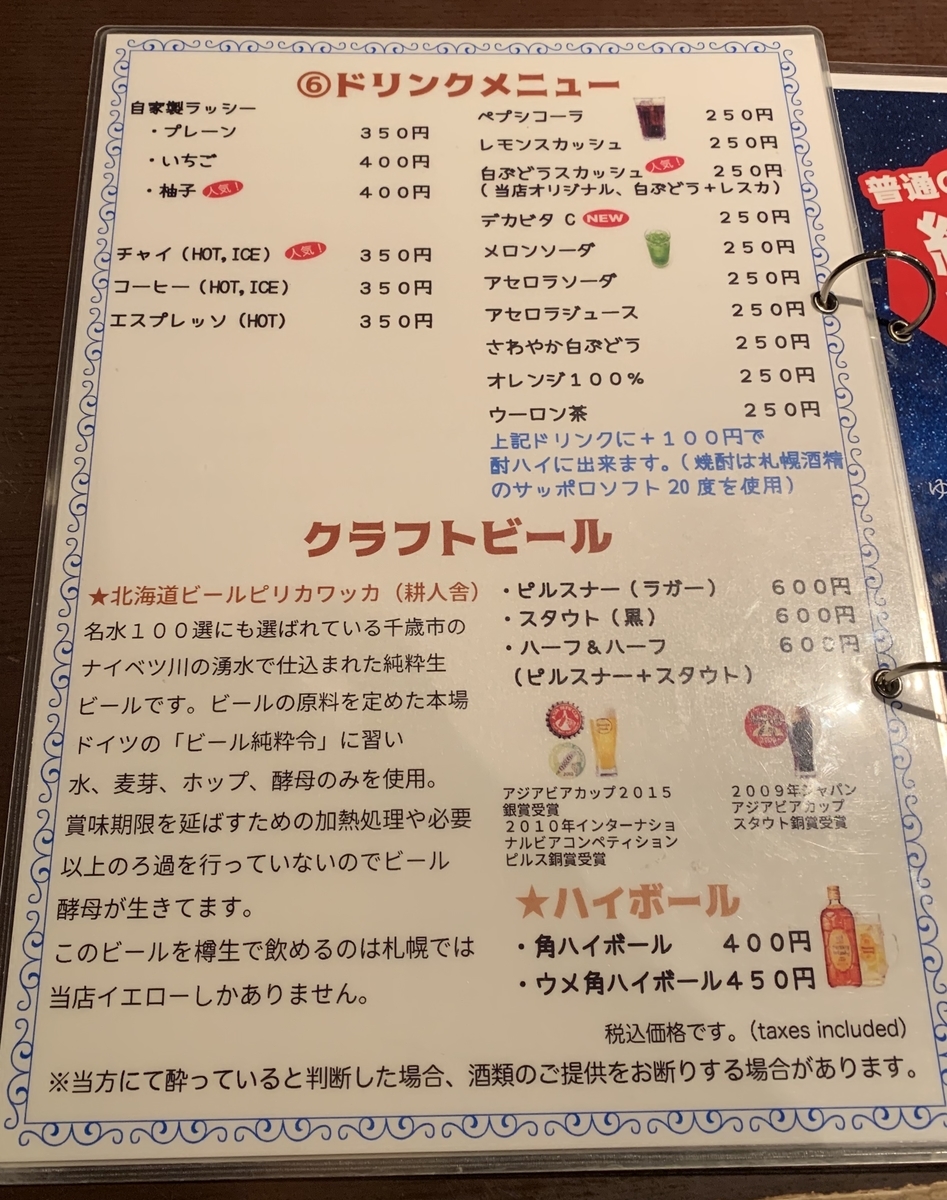 ⑥ドリンクメニュー
自家製ラッシー
・プレーン 350円
・いちご 400円
・柚子 人気！ 400円
チャイ（HOT,ICE） 人気！ 350円
コーヒー（HOT,ICE） 350円
エスプレッソ（HOT） 350円
ペプシコーラ 250円
レモンスカッシュ 250円
白ぶどうスカッシュ 人気！ 250円
（当店オリジナル、白ぶどう＋レスカ）
デカビタ C NEW 250円
メロンソーダ 250円
アセロラソーダ 250円
アセロラジュース 250円
さわやか白ぶどう 250円
オレンジ100％ 250円
ウーロン茶 250円
上記ドリンクに＋100円で
酎ハイに出来ます。（焼酎は札幌酒精
のサッポロソフト20度を使用）
クラフトビール
★北海道ビールピリカワッカ（耕人舎）
名水100選にも選ばれている千歳市の
ナイベツ川の湧水で仕込まれた純粋生
ビールです。ビールの原料を定めた本場
ドイツの「ビール純粋令」に習い
水、麦芽、ホップ、酵母のみを使用。
賞味期限を延ばすための加熱処理や必要
以上のろ過を行っていないのでビール
酵母が生きてます。
このビールを樽生で飲めるのは札幌では
当店イエローしかありません。
・ピルスナー（ラガー） 600円
・スタウト（黒） 600円
・ハーフ＆ハーフ 600円
（ピルスナー＋スタウト）
アジアビアカップ2015
銀賞受賞
2010年インターナショ
ナルビアコンペティション
ピルス銅賞受賞
2009年ジャパン
アジアビアカップ
スタウト銅賞受賞
★ハイボール
・角ハイボール 400円
・ウメ角ハイボール450円
税込価格です。（taxes included）
※当方にて酔っていると判断した場合、酒類のご提供をお断りする場合があります。
普通の
ゆ